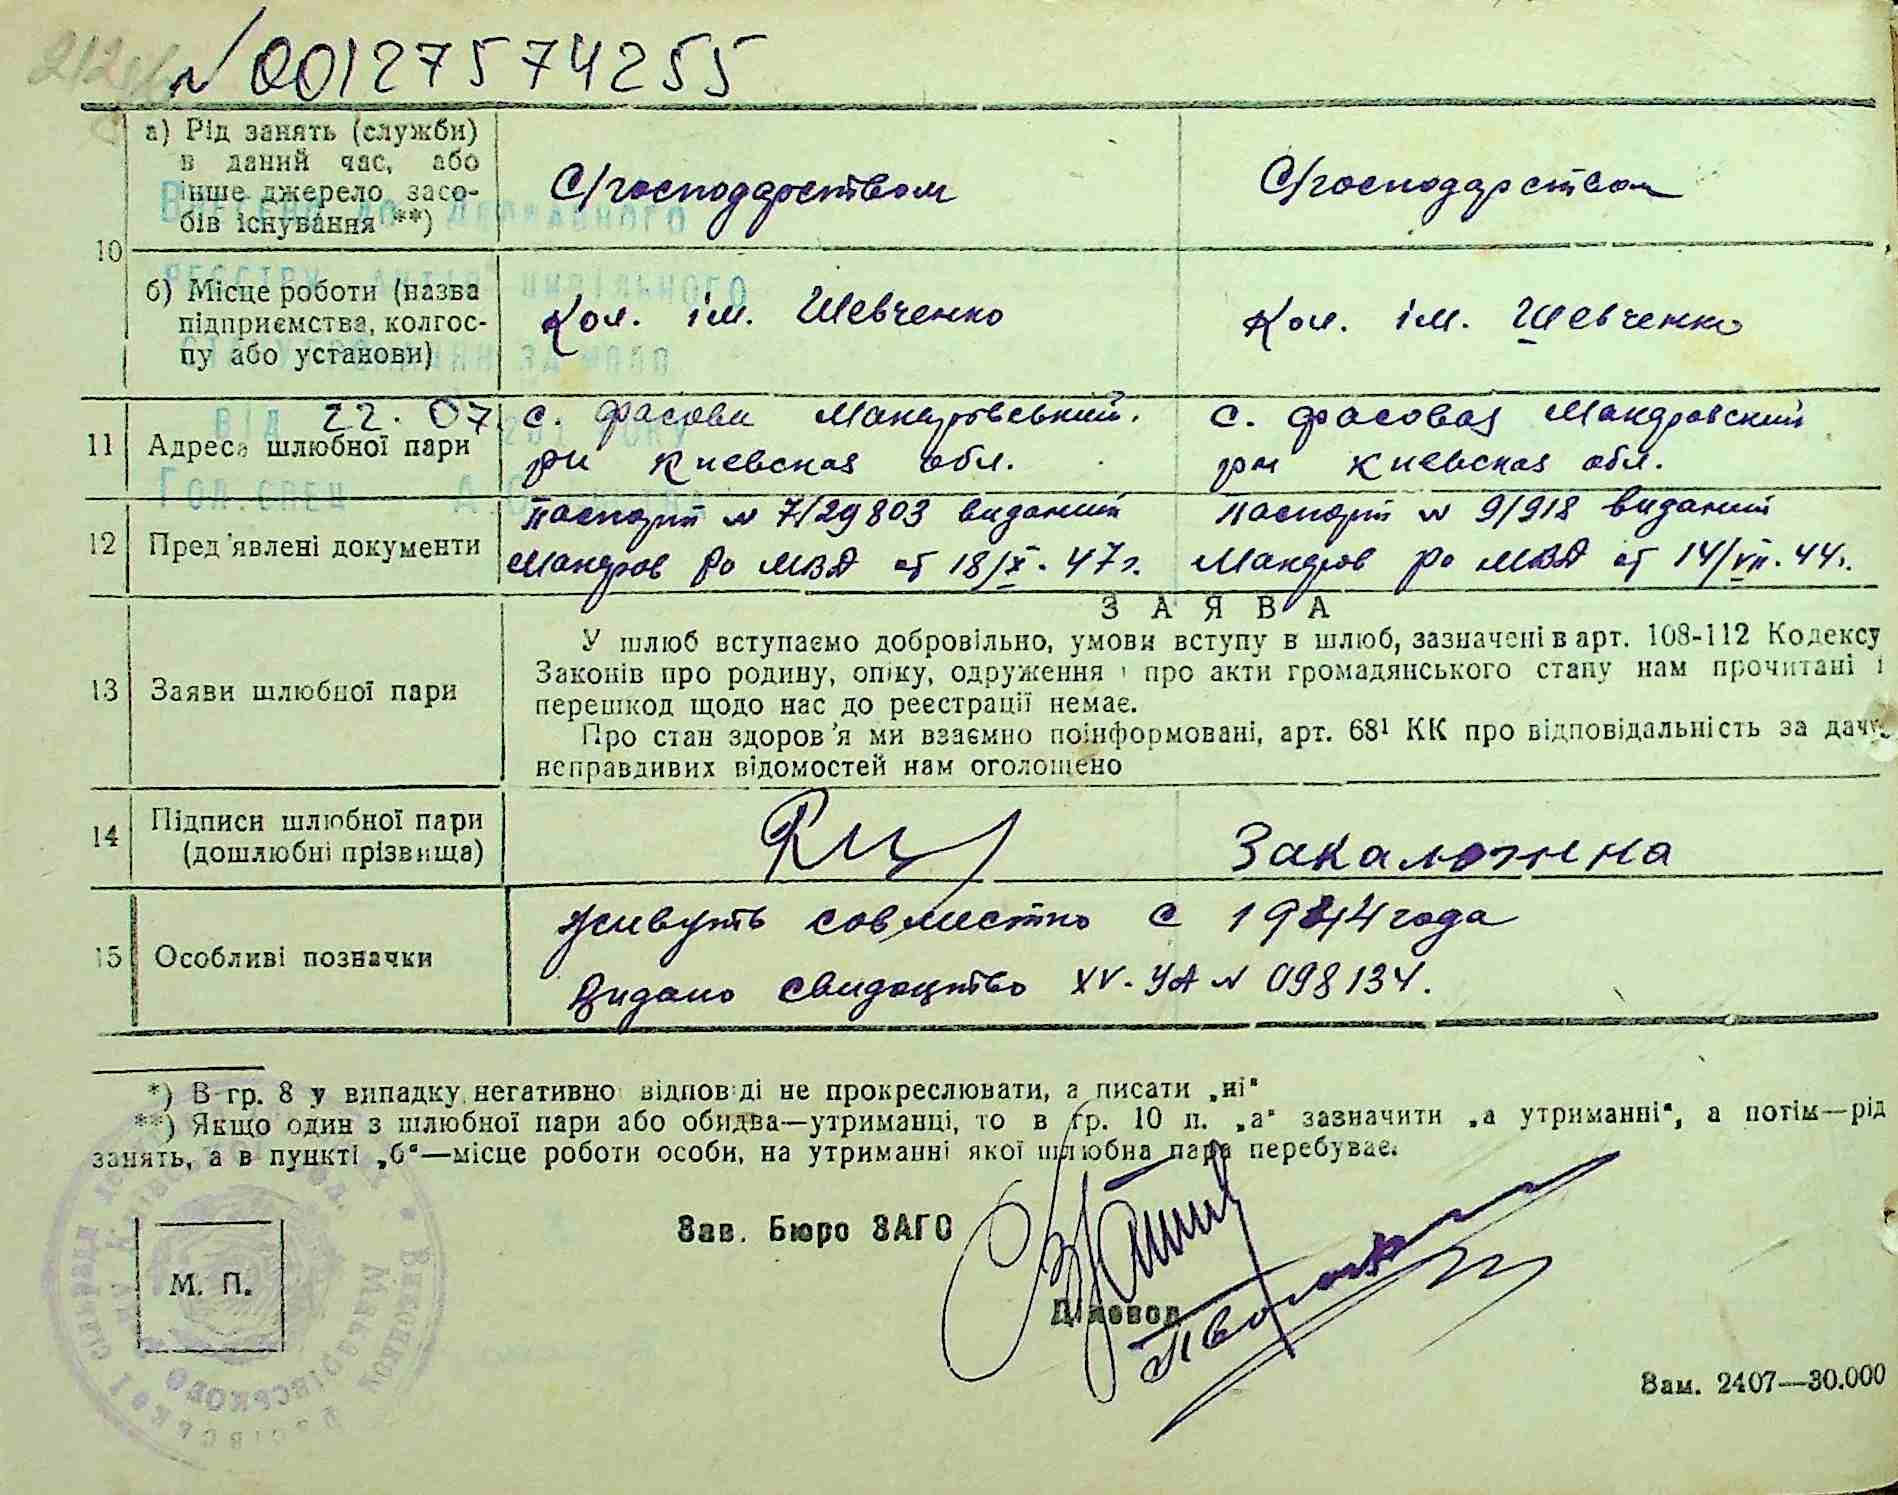 № 00127574255
10
а) Рід занять (служби)
в даний час, або
інше джерело засо-
бів існування **)
С/господарством
С/господарством
б) Місце роботи (назва
підприємства, колгос-
пу або установи)
Кол. ім. Шевченко
Кол. ім. Шевченко
РЕЄСТРУ АКТІВ ЦИВІЛЬНОГО
ВІД 22. 07. РОКУ
Гол.спец
11
Адреса шлюбної пари
с. Фасова Макарівський.
рн Киевская обл.
с. Фасовая Макаровский
рн Киевская обл.
12
Пред'явлені документи
Паспорт № 7/29803 виданий
Макаров Ро МВД от 18/X. 47г.
Паспорт № 9/918 виданий
Макаров Ро МВД от 14/VII. 44г.
13
Заяви шлюбної пари
ЗАЯВА
У шлюб вступаємо добровільно, умови вступу в шлюб, зазначені в арт. 108-112 Кодексу
Законів про родину, опіку, одруження і про акти громадянського стану нам прочитані і
перешкод щодо нас до реєстрації немає.
Про стан здоров'я ми взаємно поінформовані, арт. 68¹ КК про відповідальність за дачу
неправдивих відомостей нам оголошено
14
Підписи шлюбної пари
(дошлюбні прізвища)
15
Особливі позначки
живуть совместно с 1944 года
Видано свидоцтво XV-УА № 098134.
*) В гр. 8 у випадку негативної відповіді не прокреслювати, а писати „ні"
**) Якщо один з шлюбної пари або обидва—утриманці, то в гр. 10 п. „а" зазначити „а утриманні", а потім—рід
занять, а в пункті „б"—місце роботи особи, на утриманні якої шлюбна пара перебуває.
Зав. Бюро ЗАГС
М. П.
Діловод
Зам. 2407—30.000